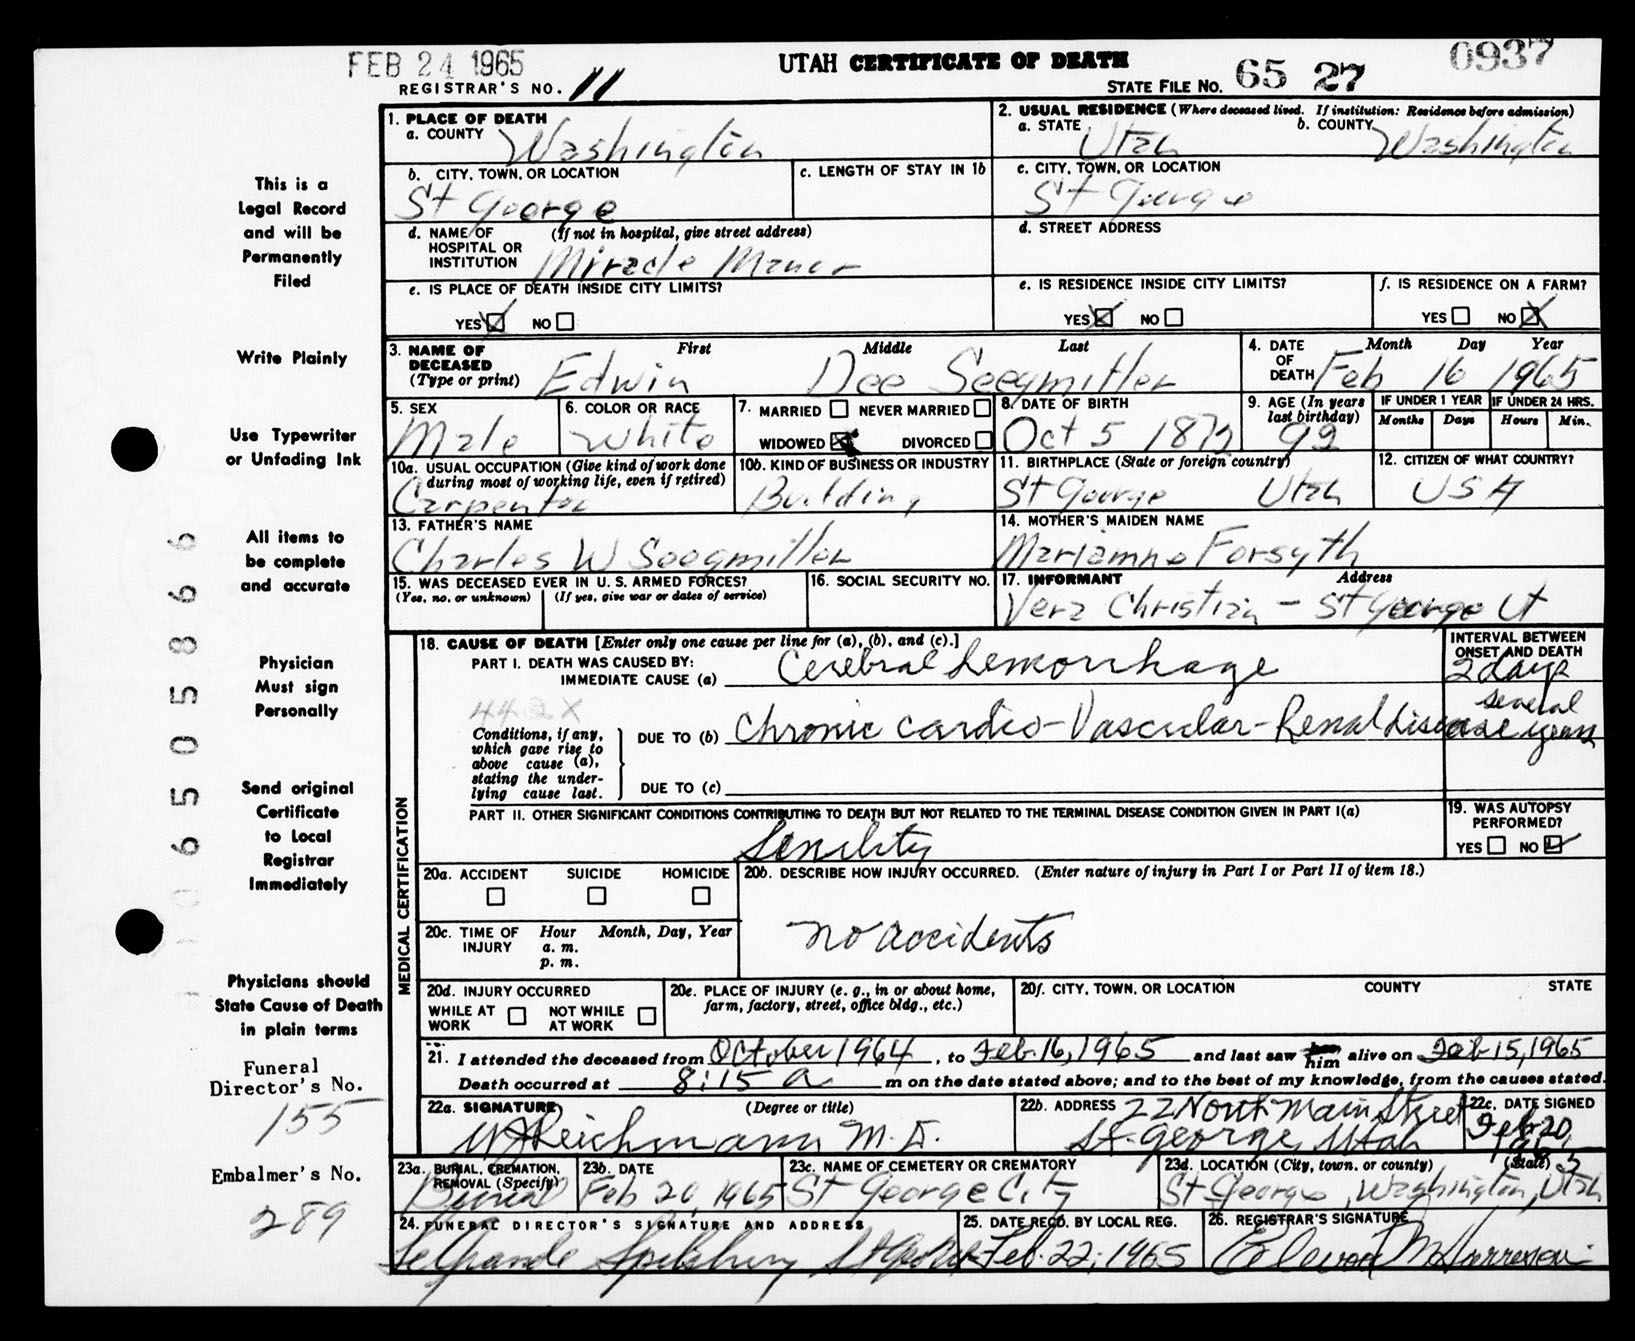 FEB 24 1965
UTAH CERTIFICATE OF DEATH
0937
REGISTRAR'S NO. 11
STATE FILE NO. 65 27
1. PLACE OF DEATH
a. COUNTY Washington
2. USUAL RESIDENCE (Where deceased lived. If institution: Residence before admission)
a. STATE Utah b. COUNTY Washington
b. CITY, TOWN, OR LOCATION St George
c. LENGTH OF STAY IN 1b
c. CITY, TOWN, OR LOCATION St George
d. NAME OF HOSPITAL OR INSTITUTION (If not in hospital, give street address) Miracle Manor
d. STREET ADDRESS
e. IS PLACE OF DEATH INSIDE CITY LIMITS?
YES NO
e. IS RESIDENCE INSIDE CITY LIMITS?
YES NO
f. IS RESIDENCE ON A FARM?
YES NO
3. NAME OF DECEASED (Type or print) First Middle Last
Edwin Dee Seegmiller
4. DATE OF DEATH Month Day Year
Feb 16 1965
5. SEX Male
6. COLOR OR RACE White
7. MARRIED NEVER MARRIED
WIDOWED DIVORCED
8. DATE OF BIRTH Oct 5 1872
9. AGE (In years last birthday) 92
IF UNDER 1 YEAR Months Days
IF UNDER 24 HRS. Hours Min.
10a. USUAL OCCUPATION (Give kind of work done during most of working life, even if retired)
Carpenter
10b. KIND OF BUSINESS OR INDUSTRY
Building
11. BIRTHPLACE (State or foreign country)
St George Utah
12. CITIZEN OF WHAT COUNTRY?
USA
13. FATHER'S NAME
Charles W Seegmiller
14. MOTHER'S MAIDEN NAME
Mariamne Forsyth
15. WAS DECEASED EVER IN U. S. ARMED FORCES?
(Yes, no, or unknown) (If yes, give war or dates of service)
16. SOCIAL SECURITY NO.
17. INFORMANT Address
Vera Christian - St George Ut
MEDICAL CERTIFICATION
18. CAUSE OF DEATH [Enter only one cause per line for (a), (b), and (c).]
INTERVAL BETWEEN ONSET AND DEATH
PART I. DEATH WAS CAUSED BY:
IMMEDIATE CAUSE (a) Cerebral hemorrhage 2 days
442X
Conditions, if any, which gave rise to above cause (a), stating the underlying cause last.
DUE TO (b) Chronic Cardio-Vascular-Renal disease several years
DUE TO (c)
PART II. OTHER SIGNIFICANT CONDITIONS CONTRIBUTING TO DEATH BUT NOT RELATED TO THE TERMINAL DISEASE CONDITION GIVEN IN PART I(a)
Senility
19. WAS AUTOPSY PERFORMED?
YES NO
20a. ACCIDENT SUICIDE HOMICIDE
20b. DESCRIBE HOW INJURY OCCURRED. (Enter nature of injury in Part I or Part II of item 18.)
no accidents
20c. TIME OF INJURY Hour a. m. p. m. Month, Day, Year
20d. INJURY OCCURRED
WHILE AT WORK NOT WHILE AT WORK
20e. PLACE OF INJURY (e. g., in or about home, farm, factory, street, office bldg., etc.)
20f. CITY, TOWN, OR LOCATION COUNTY STATE
21. I attended the deceased from October 1964, to Feb. 16, 1965 and last saw him alive on Feb 15, 1965
Death occurred at 8:15 a m on the date stated above; and to the best of my knowledge, from the causes stated.
22a. SIGNATURE (Degree or title)
Reichmann M.D.
22b. ADDRESS 22 North Main Street
St. George, Utah
22c. DATE SIGNED
Feb 20, 1965
23a. BURIAL, CREMATION, REMOVAL (Specify)
Burial
23b. DATE
Feb 20, 1965
23c. NAME OF CEMETERY OR CREMATORY
St George City
23d. LOCATION (City, town, or county) (State)
St George, Washington, Utah
24. FUNERAL DIRECTOR'S SIGNATURE AND ADDRESS
LeGrande Spilsbury St George
25. DATE RECD. BY LOCAL REG.
Feb. 22, 1965
26. REGISTRAR'S SIGNATURE
This is a
Legal Record
and will be
Permanently
Filed
Write Plainly
Use Typewriter
or Unfading Ink
All items to
be complete
and accurate
Physician
Must sign
Personally
Send original
Certificate
to Local
Registrar
Immediately
Physicians should
State Cause of Death
in plain terms
Funeral
Director's No.
155
Embalmer's No.
289